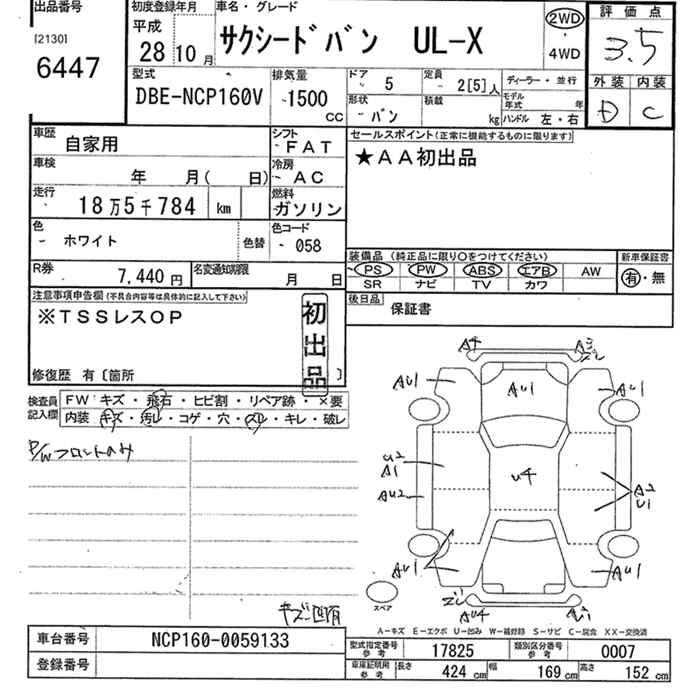 出品番号
[2130]
6447
初度登録年月
平成
28年10月
車名・グレード
サクシードバン UL-X
2WD
・
4WD
評価点
3.5
外装 内装
D C
型式
DBE-NCP160V
排気量
1500
CC
ドア 5
形状 バン
定員 2[5]人
積載 kg
ディーラー・並行
モデル年式 年
ハンドル 左・右
車歴 自家用
シフト FAT
車検 年 月( 日)
冷房 AC
走行 18万5千784 km
燃料 ガソリン
色 ホワイト 色替
色コード 058
R券 7,440円
名変通知期限 月 日
セールスポイント(正常に機能するものに限ります)
★AA初出品
装備品 (純正品に限り○をつけてください)
PS PW ABS エアB AW
SR ナビ TV カワ
新車保証書
有・無
後日品 保証書
注意事項申告欄(不具合内容等は具体的に記入して下さい)
※TSSレスOP
初出品
修復歴 有〔箇所 〕
検査員記入欄
FW キズ・飛石・ヒビ割・リペア跡・×要
内装 キズ・汚レ・コゲ・穴・スレ・キレ・破レ
P/Wフロントのみ
キズ凹有
A4 A3
AU1 AU1 AU1
U2
A1
U4
AU2
A2
U1
AU1 AU1
AU4
スペア
A−キズ E−エクボ U−凹み W−補修跡 S−サビ C−腐食 XX−交換済
車台番号 NCP160-0059133
登録番号
型式指定番号 参考 17825
類別区分番号 参考 0007
車庫証明用 参考 長さ 424 cm 幅 169 cm 高さ 152 cm